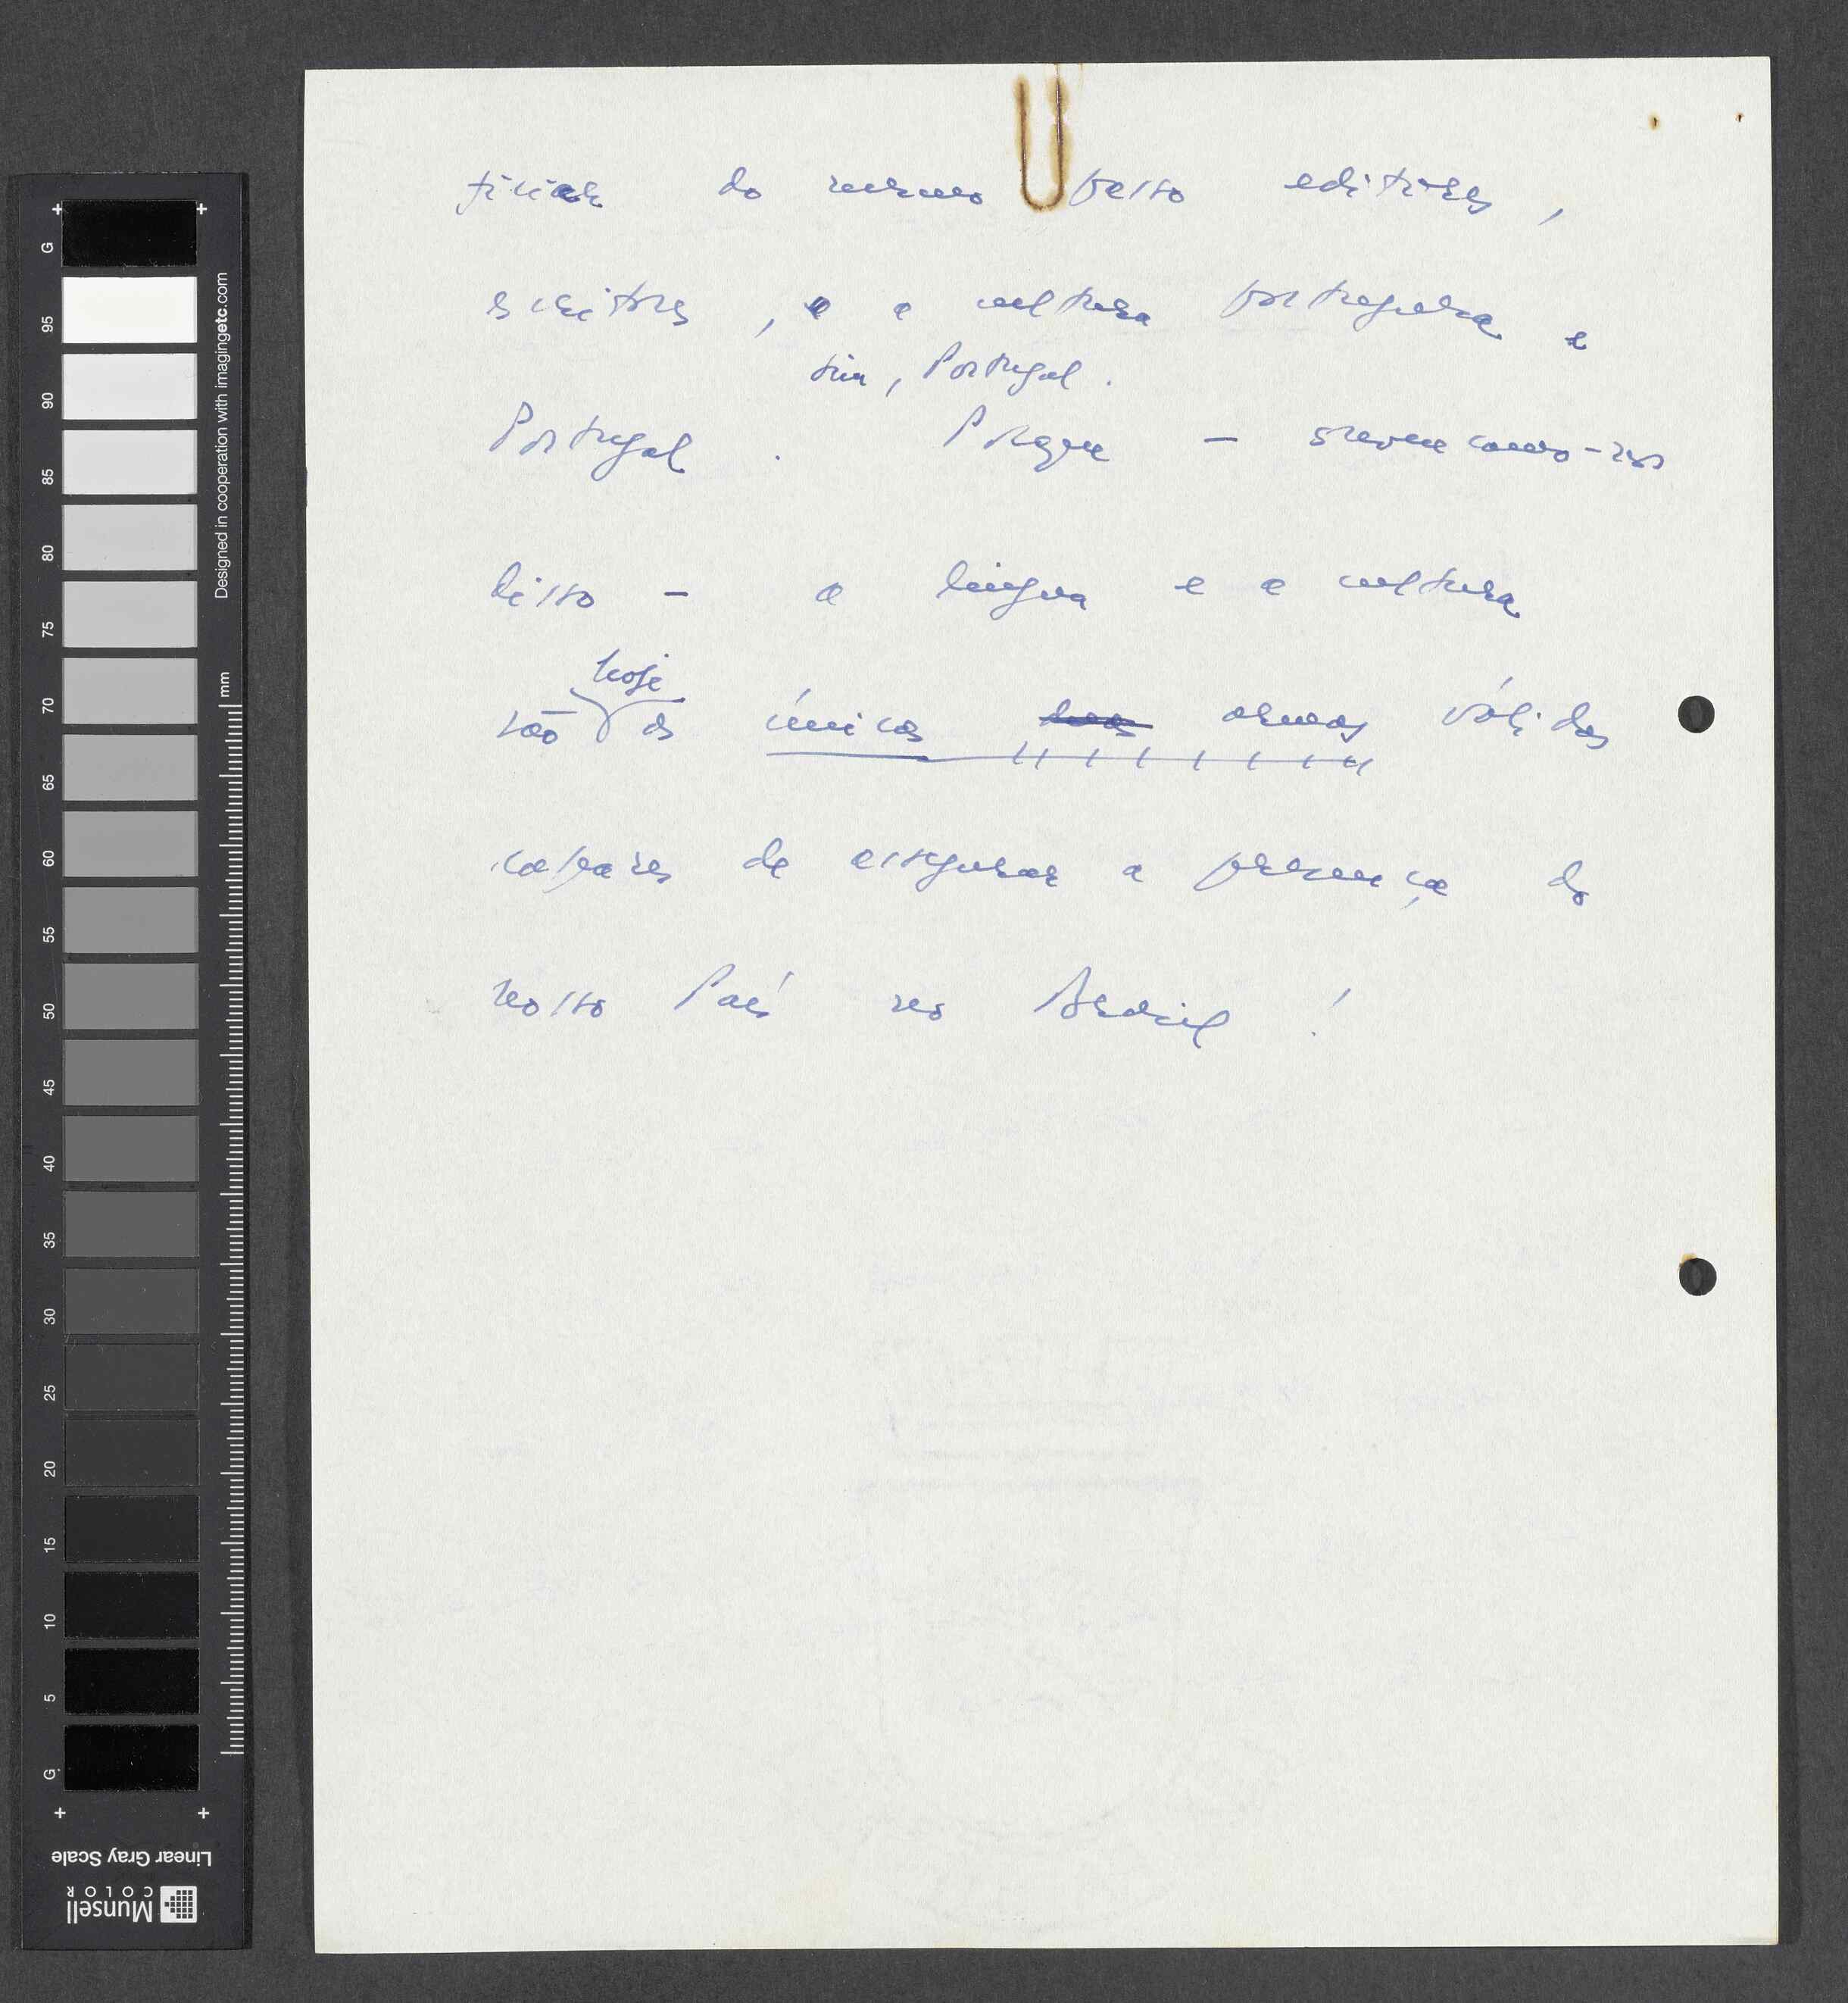 ficiar do mesmo passo editores,
escritores, e a cultura portuguesa e
sim, Portugal.
Portugal. Porque — convençamo-nos
disso — a língua e a cultura
hoje
são as únicas armas válidas
capazes de assegurar a presença do
nosso País no Brasil!
G
95
90
85
80
75
70
65
60
55
50
45
40
35
30
25
20
15
10
5
G
Designed in cooperation with imagingetc.com
mm
Linear Gray Scale
Munsell
COLOR